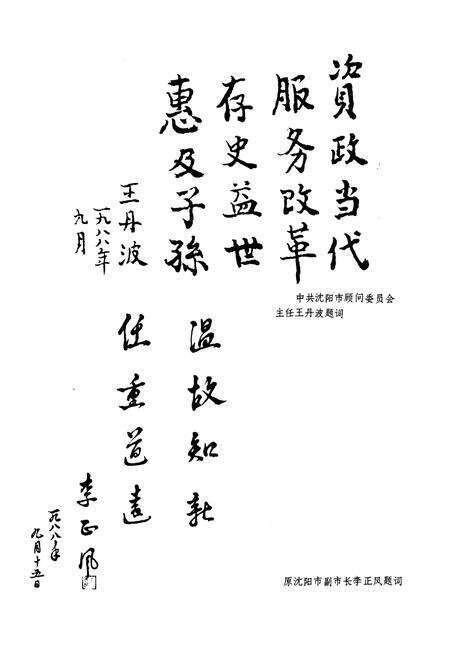 资政当代
服务改革
存史益世
惠及子孫
王丹波
一九八八年
九月
中共沈阳市顾问委员会
主任王丹波题词
温故知新
任重道遠
李正风
一九八八年
九月十五日
原沈阳市副市长李正风题词